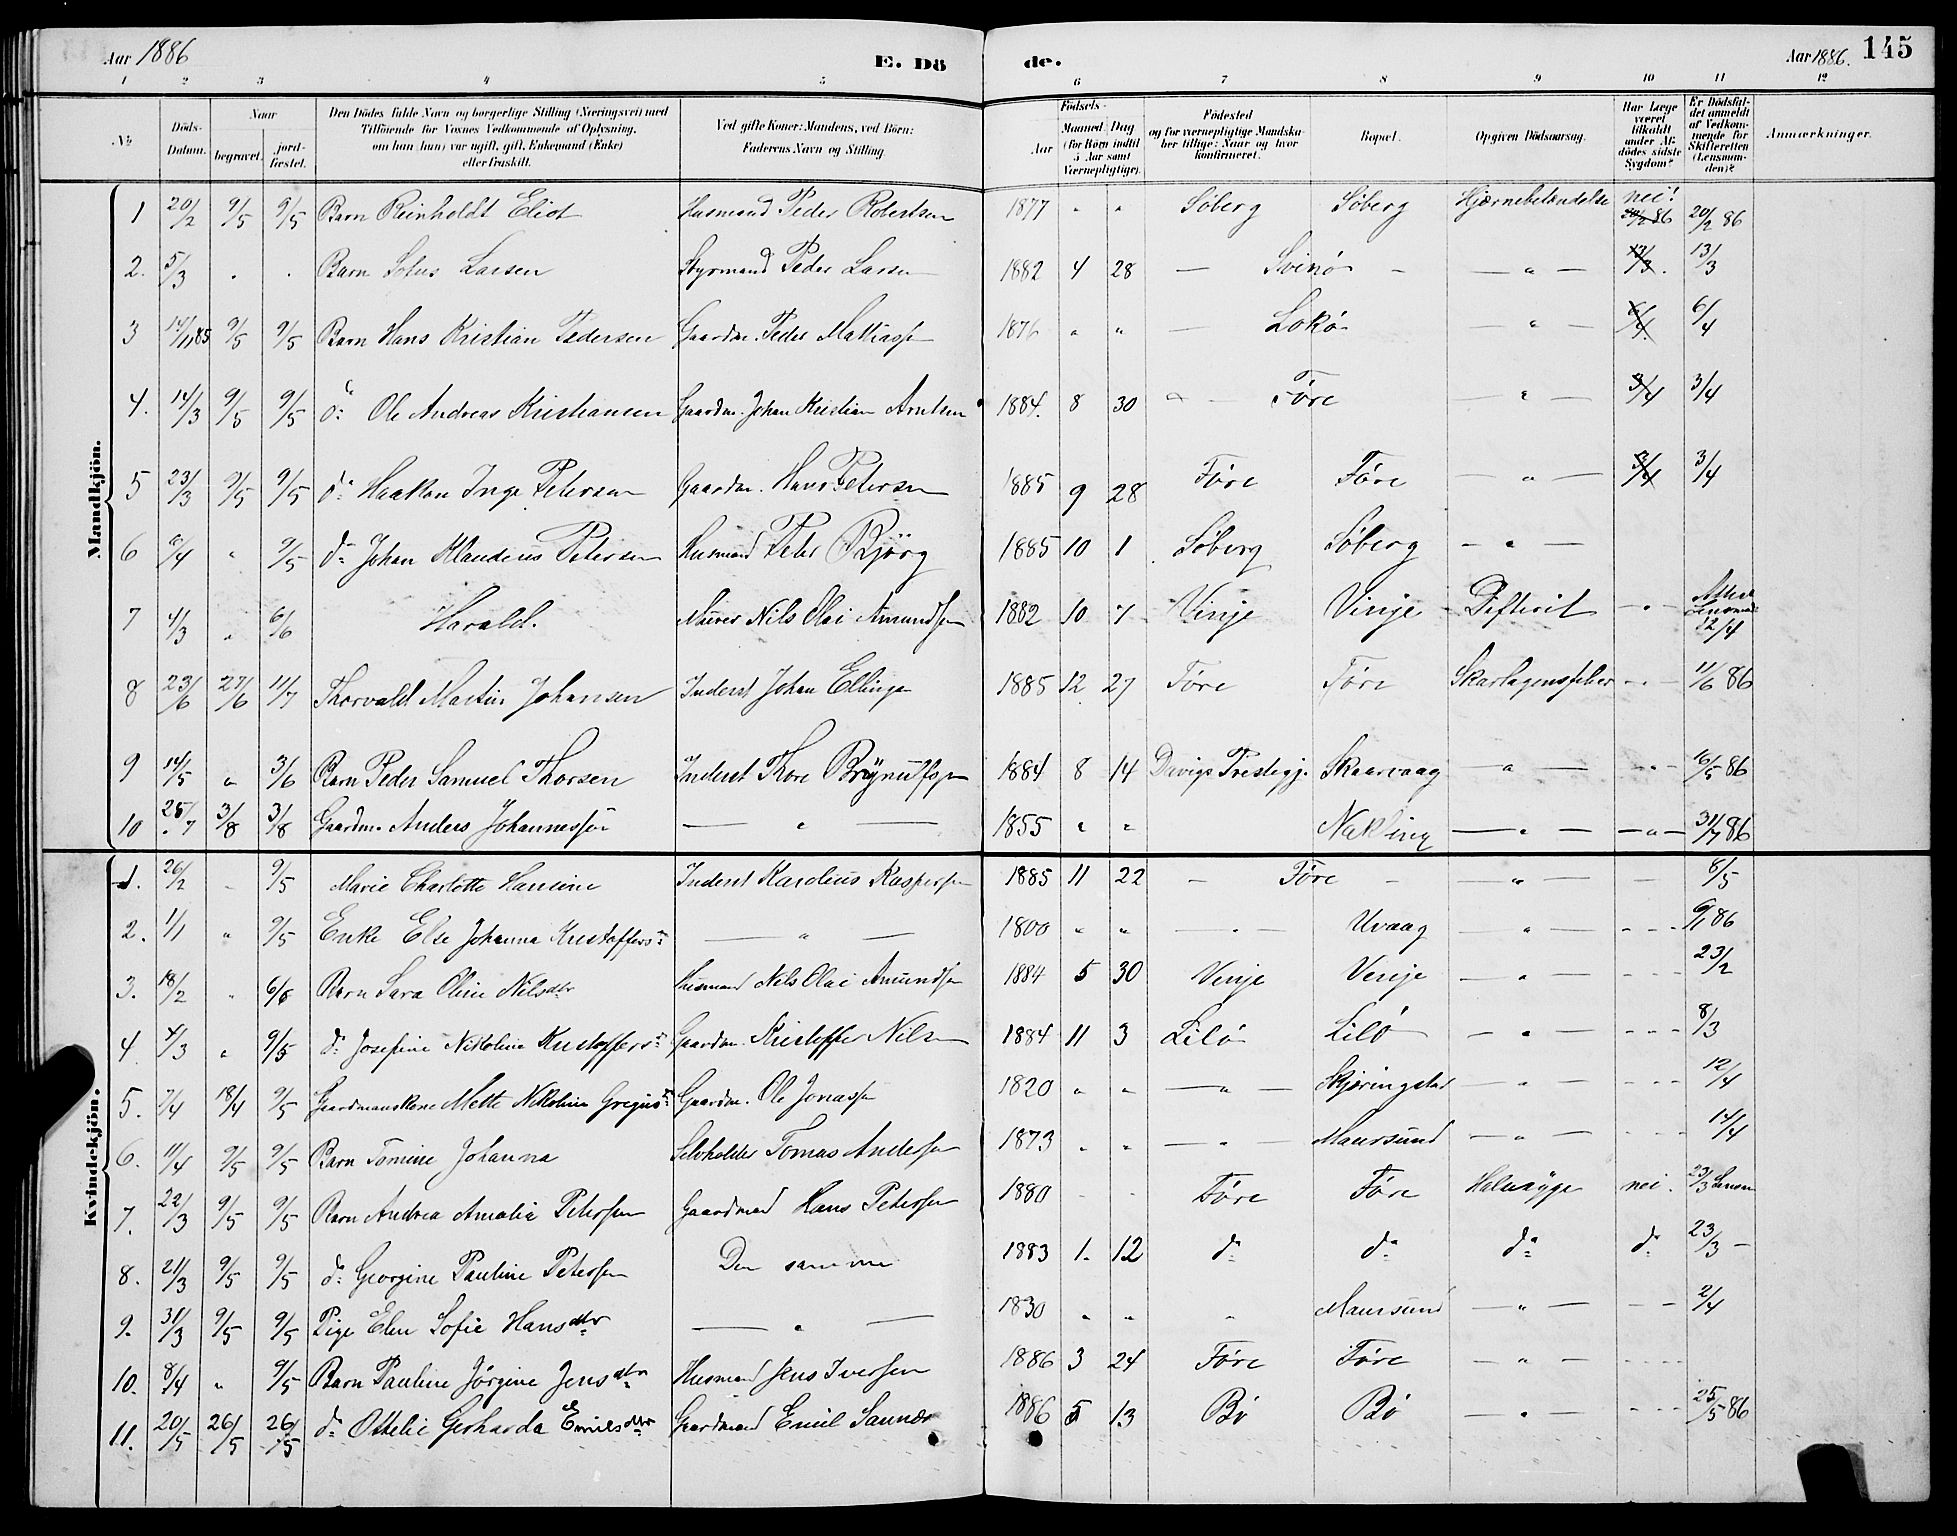 Aar 1886 E. Dö de. Aar 1886. 145
1 2 3 4 5 6 7 8 9 10 11 12
No
Döds-Datum.
Naar
begravet.
jord-fæstet.
Den Dödes fulde Navn og borgerlige Stilling (Næringsvei) med
Tilföiende for Voxnes Vedkommende af Oplysning,
om han (hun) var ugift, gift, Enkemand (Enke)
eller fraskilt.
Ved gifte Koner: Mandens, ved Börn:
Faderens Navn og Stilling.
Födsels-
Aar
Maaned Dag
(for Börn indtil
5 Aar samt
Værnepligtige).
Födested
og for værnepligtige Mandska-
ber tillige: Naar og hvor
konfirmeret.
Bopæl.
Opgiven Dödsaarsag.
Har Læge
været
tilkaldt
under Af-
dödes sidste
Sygdom?
Er Dödsfal-
det anmeldt
af Vedkom-
mende for
Skifteretten
(Lensman-
den)?
Anmærkninger.
Mandkjön.
1 20/2 9/5 9/5 Barn Reinholdt Eliot Husmand Peder Robertsen 1877 " " Söberg Söberg Hjærnebetændelse nei! 20/2 86 20/2 86
2. 5/3 " " Barn Sofus Larsen Styrmand Peder Larsen 1882 4 28 — Svinö — — " — 13/3. 13/3
3 14/11 85 9/5 9/5 Barn Hans Kristian Pedersen Gaardm. Peder Mathiassen 1876 " " — Lokö — " — 6/4. 6/4
4. 14/3 9/5 9/5 do Ole Andreas Kristiansen Gaardm. Johan Kristian Arntsen 1884. 8 30 — Före — " — 3/4 3/4
5 23/3 9/5 9/5 do Haakon Inge Petersen Gaardm. Hans Petersen 1885 9 28 Före Före — " — 3/4 3/4
6 6/4 " 9/5 do Johan Klaudius Petersen Husmand Peter Björg 1885 10 1 Söberg Söberg — " —
7 4/3 " 6/6 Harald. Murer Nils Olai Amundsen 1882 10 7 Vinje Vinje Difterit — " — 12/4
8 23/6 27/6 11/7 Thorvald Martin Johansen Inderst Johan Ellingsen 1885 12 27 Före Före Skarlagensfeber — " — 11/6 86
9 14/5 " 3/6 Barn Peder Samuel Thorsen Inderst Thore Brynulfsen 1884 8 14 Davigs Prestegj. Skaarvaag — " — — " — 16/5 86
10 25/7 3/8 3/8 Gaardm. Anders Johannessen — " — 1855 " " Nakling — " — — " — 31/7 86
Kvindekjön.
1. 26/2 " 9/5 Marie Charlotte Hansine Inderst Karolius Kaspersen 1885 11 22 — Före — — " — — 8/5
2. 1/1 " 9/5 Enke Else Johanna Kristoffersdr — " — 1800 " " — " — Uvaag — " — — " — 6/1 86
3. 18/2 " 6/6 Barn Sara Oline Nilsdtr Husmand Nils Olai Amundsen 1884 5 30 Vinje Vinje — " — — " — 23/2
4. 4/3 " 9/5 do Josefine Nikoline Kristoffersdr Gaardm. Kristoffer Nilsen 1884 11 3 Lilö Lilö — " — — " — 8/3
5. 7/4 18/4 9/5 Gaardmandskone Mette Nikoline Gregusdr Gaardm. Ole Jonassen 1820 " " — " — Skjöringstad — " — — " — 12/4
6. 11/4 9/5 9/5 Barn Tomine Johanna Selvholder Tomas Andersen 1873 " " — " — Maursund — " — — " — 14/4
7. 22/3 9/5 9/5 Barn Andrea Amalia Petersen Gaardmand Hans Petersen 1880 " " Före Före Halssyge nei. 23/3 Lensm
8. 21/3 9/5 9/5 do Georgine Pauline Petersen Den samme 1883 1. 12 do do do do 23/3 —
9. 31/3 9/5 9/5 Pige Elen Sofie Hansdtr — " — 1830 " " " Maursund — " — — — 2/4
10. 8/4 " 9/5 Barn Pauline Jörgine Jensdtr Husmand Jens Iversen 1886 3 24 Före Före — " — — — —
11. 20/5 26/5 26/5 do Ottelie Gerharda Emilsdtr Gaardmand Emil Sannes 1886 5 13 Bö Bö — " — — — — 25/5 86